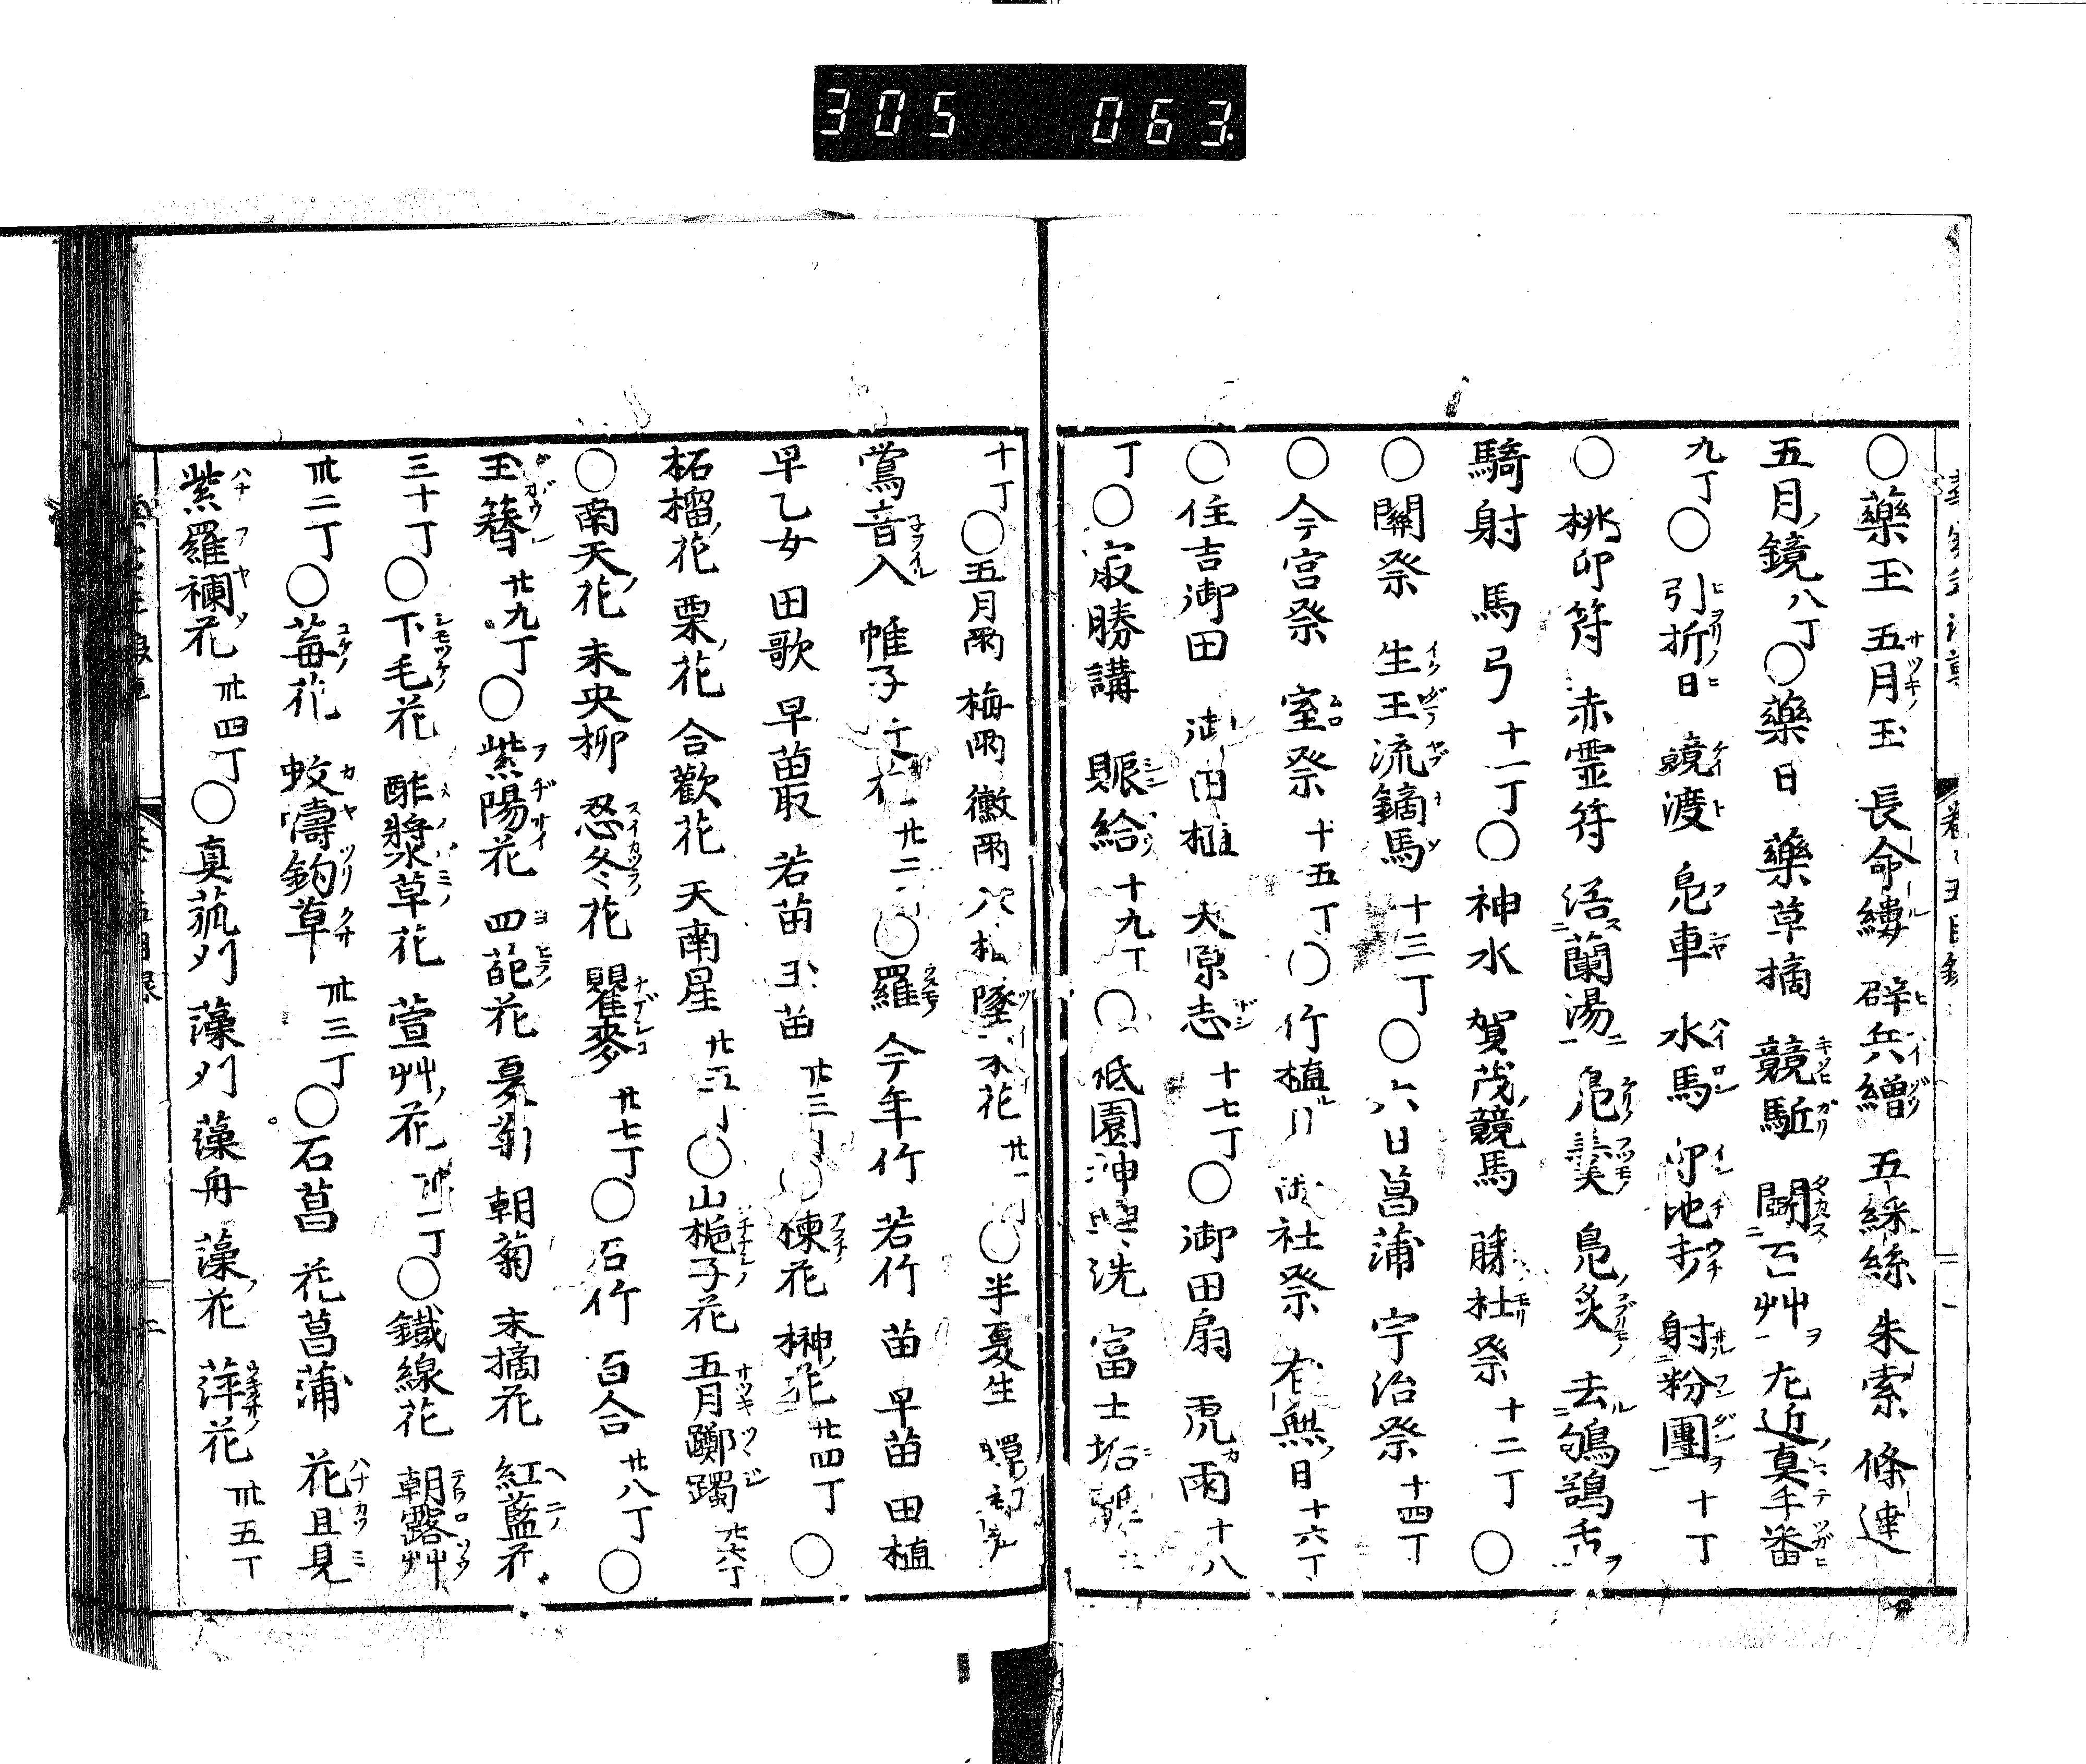 305 063
○藥玉 五月玉 長命縷 辟兵繒 五綵絲 朱索 條達
五月鏡 八丁 ○藥日 藥草摘 競駈 鬪百艸 左近真手番
九丁 ○引折日 競渡 鳧車 水馬 印地打 射粉團 十丁
○桃印符 赤霊符 浴蘭湯 鳧羹 鳧炙 去鴝鵒舌
騎射 馬弓 十一丁 ○神水 賀茂競馬 藤杜祭 十二丁 ○
○關祭 生玉流鏑馬 十三丁 ○六日菖蒲 宇治祭 十四丁
○今宮祭 室祭 十五丁 ○竹植日 社祭 有無日 十六丁
○住吉御田 御田植 大原志 十七丁 ○御田扇 虎雨 十八
丁 ○㝡勝講 賑給 十九丁 ○祇園神輿洗 富士垢離
十丁 ○五月雨 梅雨 黴雨 墜栗花 廿一丁 ○半夏生
鶯音入 帷子 廿二 ○羅 今年竹 若竹 苗 早苗 田植
早乙女 田歌 早苗取 若苗 玉苗 廿三丁 ○楝花 榊花 廿四丁 ○
柘榴花 栗花 合歡花 天南星 廿五丁 ○山梔子花 五月躑躅 廿六丁
○南天花 未央柳 忍冬花 瞿麥 廿七丁 ○石竹 百合 廿八丁 ○
玉簪 廿九丁 ○紫陽花 四葩花 夏菊 朝菊 末摘花 紅藍花
三十丁 ○下毛花 酢漿草花 萱艸花 卅一丁 ○鐵線花 朝露艸
卅二丁 ○莓花 蚊幬釣草 卅三丁 ○石菖 花菖蒲 花且見
紫羅襴花 卅四丁 ○真菰刈 藻刈 藻舟 藻花 萍花 卅五丁